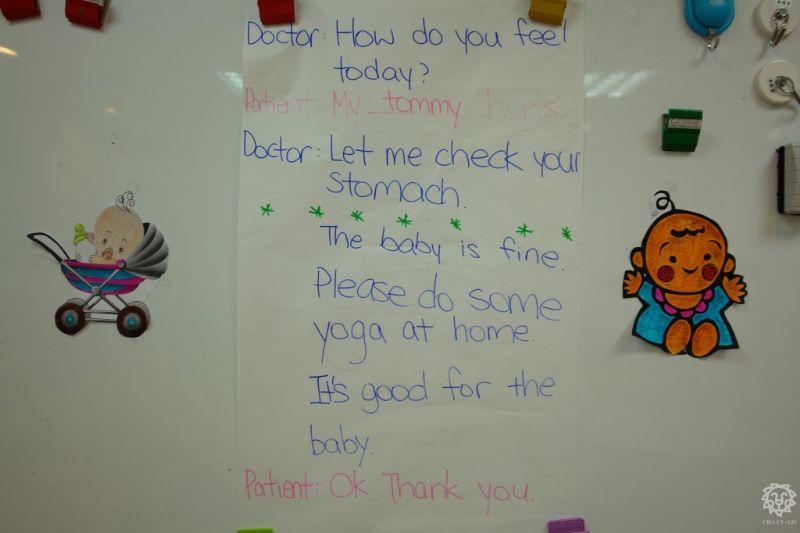 Doctor: How do you feel
today?
Patient: My tommy hurts.
Doctor: Let me check your
stomach.
The baby is fine.
Please do some
yoga at home.
It's good for the
baby.
Patient: Ok. Thank you.
CHAIN-GO